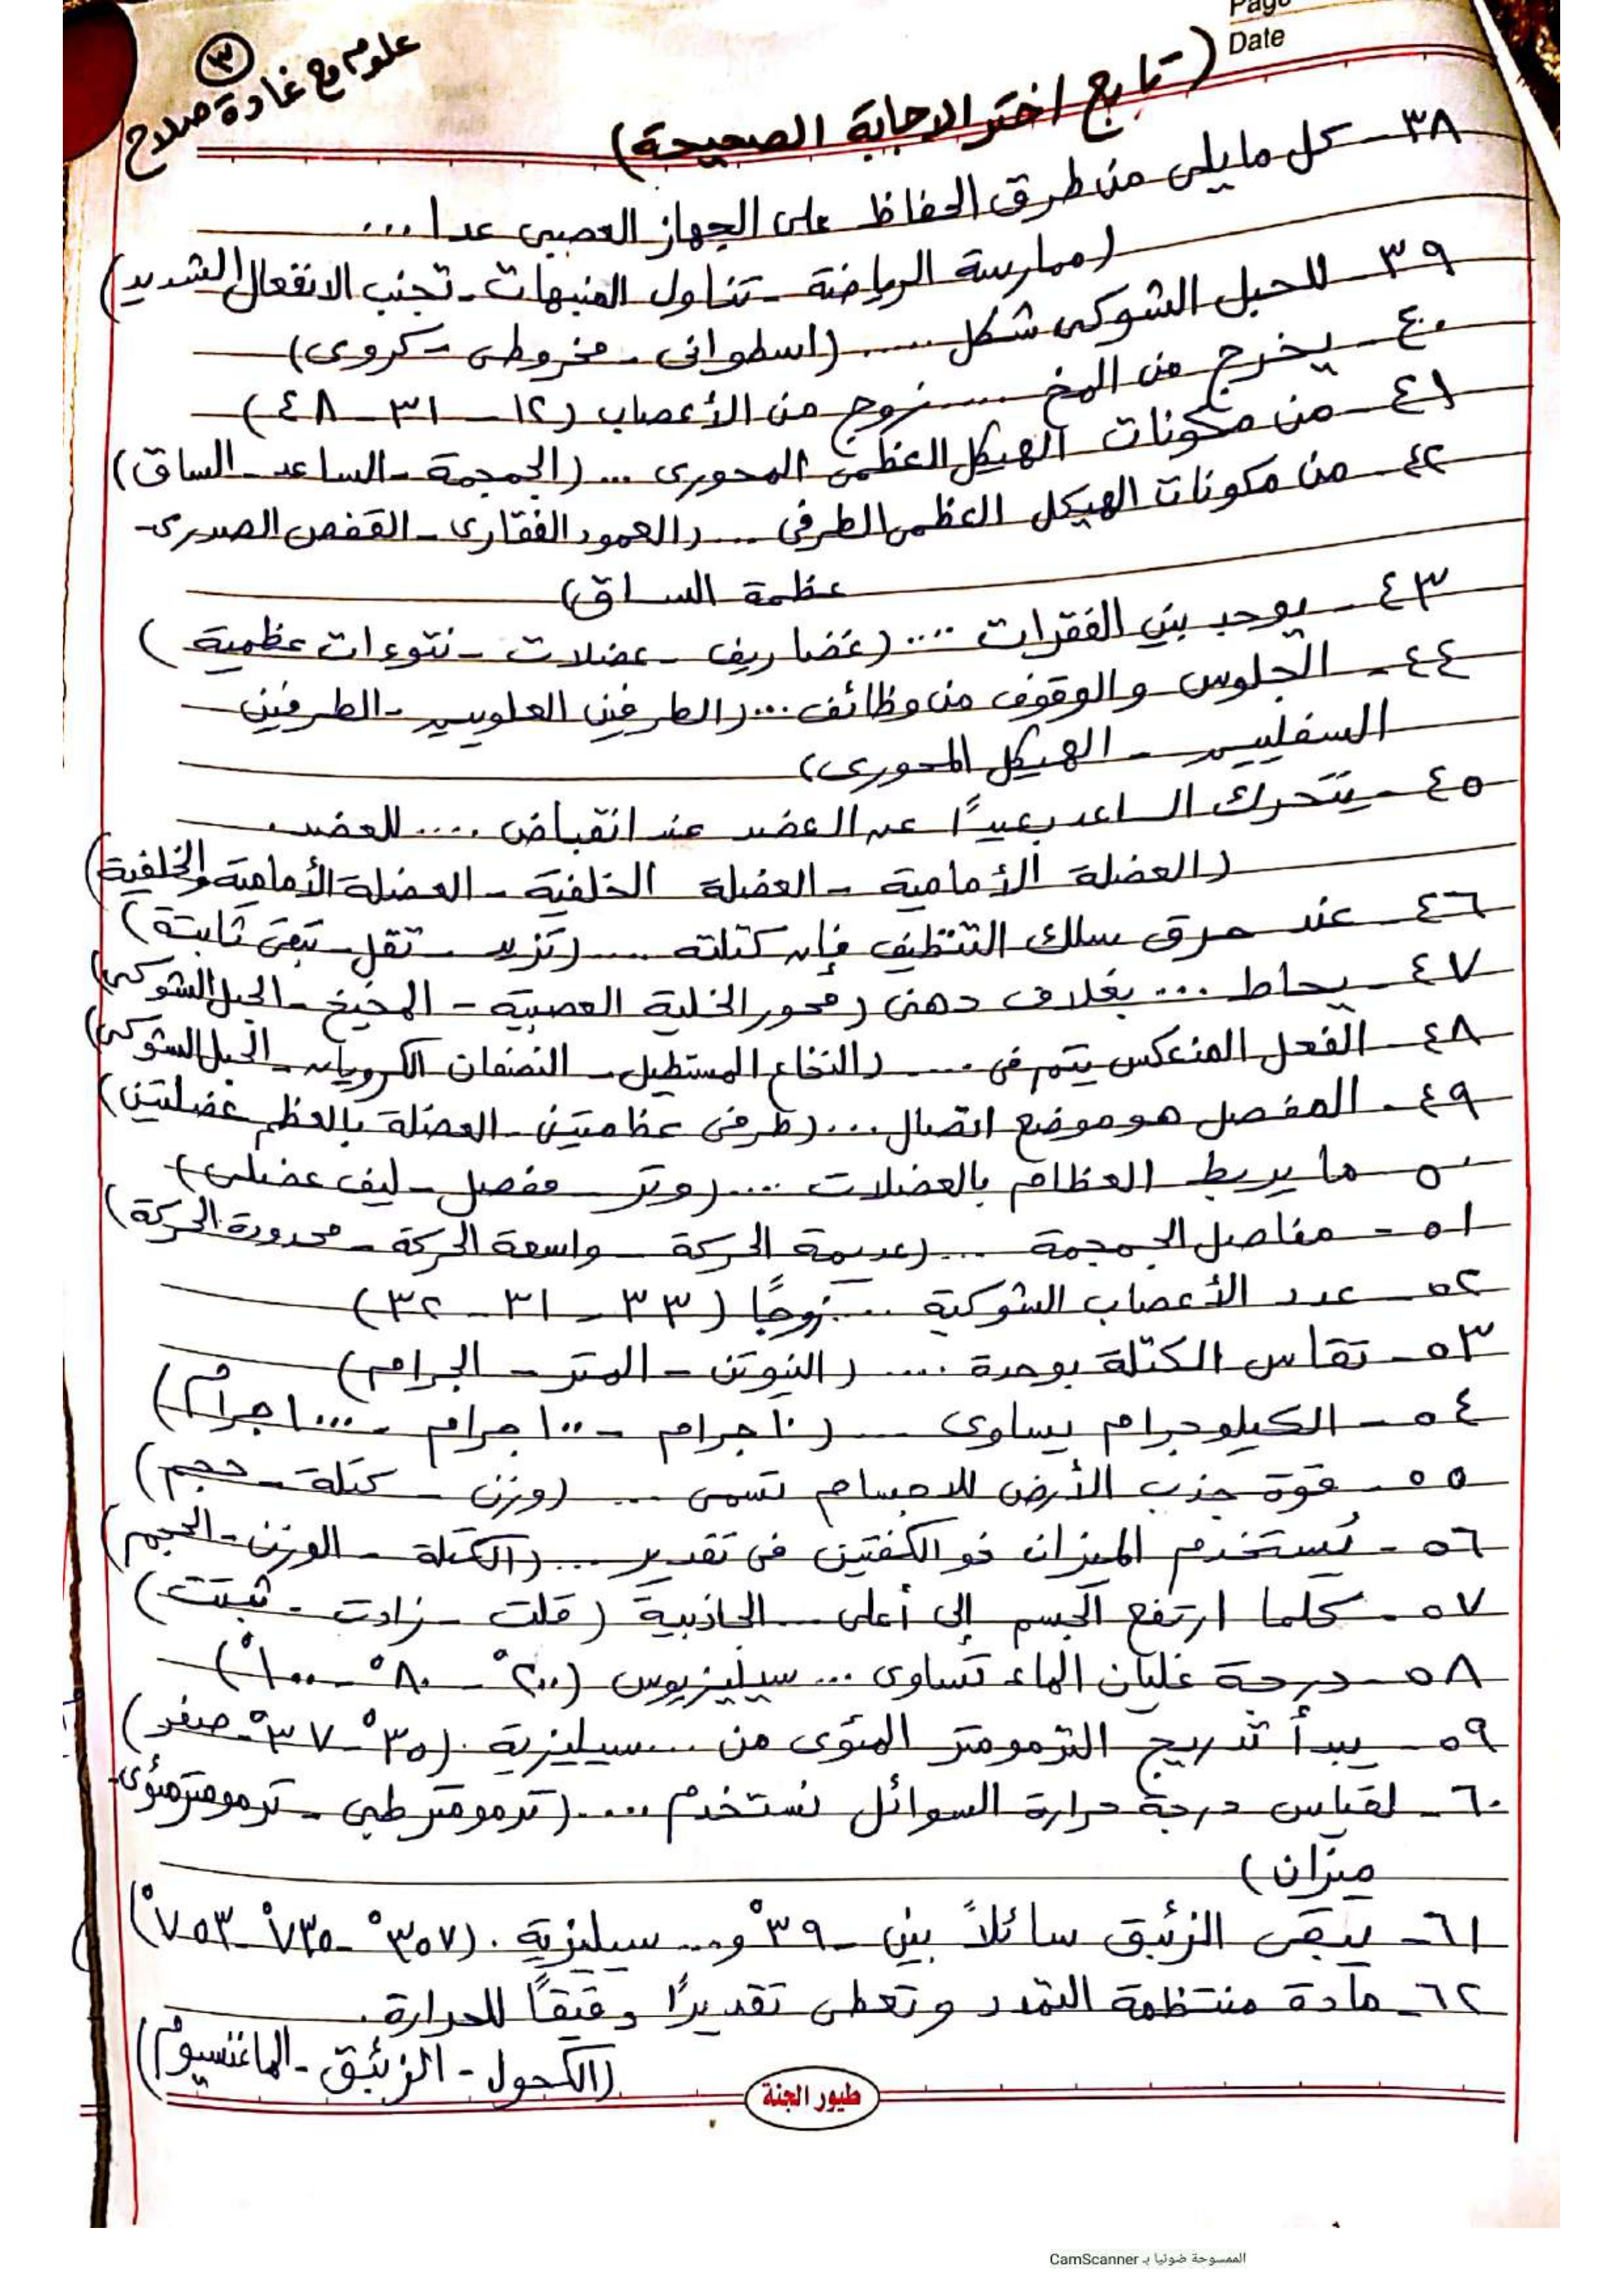 Page
Date
٣
علوم مع غادة صلاح
(تابع اختر الاجابة الصحيحة)
٣٨- كل مايلى من طرق الحفاظ على الجهاز العصبى عدا ...
(ممارسة الرياضة - تناول المنبهات - تجنب الانفعال الشديد)
٣٩- للحبل الشوكى شكل ..... (اسطوانى - مخروطى - كروى)
٤٠- يخرج من المخ ..... زوج من الأعصاب (١٢ - ٣١ - ٤٨)
٤١- من مكونات الهيكل العظمى المحورى ... (الجمجمة - الساعد - الساق)
٤٢- من مكونات الهيكل العظمى الطرفى .... (العمود الفقارى - القفص الصدرى -
عظمة الساق)
٤٣- يوجد بين الفقرات .... (غضاريف - عضلات - نتوءات عظمية)
٤٤- الجلوس والوقوف من وظائف ... (الطرفين العلويين - الطرفين
السفليين - الهيكل المحورى)
٤٥- يتحرك الساعد بعيدًا عن العضد عند انقباض .... للعضد.
(العضلة الأمامية - العضلة الخلفية - العضلة الأمامية والخلفية)
٤٦- عند حرق سلك التنظيف فإن كتلته .... (تزيد - تقل - تبقى ثابتة)
٤٧- يحاط ... بغلاف دهنى (محور الخلية العصبية - المخيخ - الحبل الشوكى)
٤٨- الفعل المنعكس يتم فى .... (النخاع المستطيل - النصفان الكرويان - الحبل الشوكى)
٤٩- المفصل هو موضع اتصال ... (طرفى عظامتين - العضلة بالعظم عضلتين)
٥٠- ما يربط العظام بالعضلات .... (وتر - مفصل - ليف عضلى)
٥١- مفاصل الجمجمة .... (عديمة الحركة - واسعة الحركة - محدودة الحركة)
٥٢- عدد الأعصاب الشوكية .... زوجًا (٣٣ - ٣١ - ٣٢)
٥٣- تقاس الكتلة بوحدة .... (النيوتن - المتر - الجرام)
٥٤- الكيلوجرام يساوى .... (١٠ جرام - ١٠٠ جرام - ١٠٠٠ جرام)
٥٥- قوة جذب الأرض للاجسام تسمى .... (وزن - كتلة - حجم)
٥٦- يُستخدم الميزان ذو الكفتين فى تقدير .... (الكتلة - الوزن - الحجم)
٥٧- كلما ارتفع الجسم إلى أعلى .... الجاذبية (قلت - زادت - ثبتت)
٥٨- درجة غليان الماء تساوى ... سيليزيوس (٢٠٠° - ٨٠° - ١٠٠°)
٥٩- يبدأ تدريج الترمومتر المئوى من .... سيليزية. (٣٥° - ٣٧° - صفر)
٦٠- لقياس درجة حرارة السوائل نستخدم .... (ترمومتر طبى - ترمومتر مئوى -
ميزان)
٦١- يبقى الزئبق سائلاً بين -٣٩° و... سيليزية. (٣٥٧° - ٧٣٥° - ٧٥٣°)
٦٢- مادة منتظمة التمدد وتعطى تقديرًا دقيقًا للحرارة.
(الكحول - الزئبق - الماغنسيوم)
طيور الجنة
الممسوحة ضوئيا بـ CamScanner